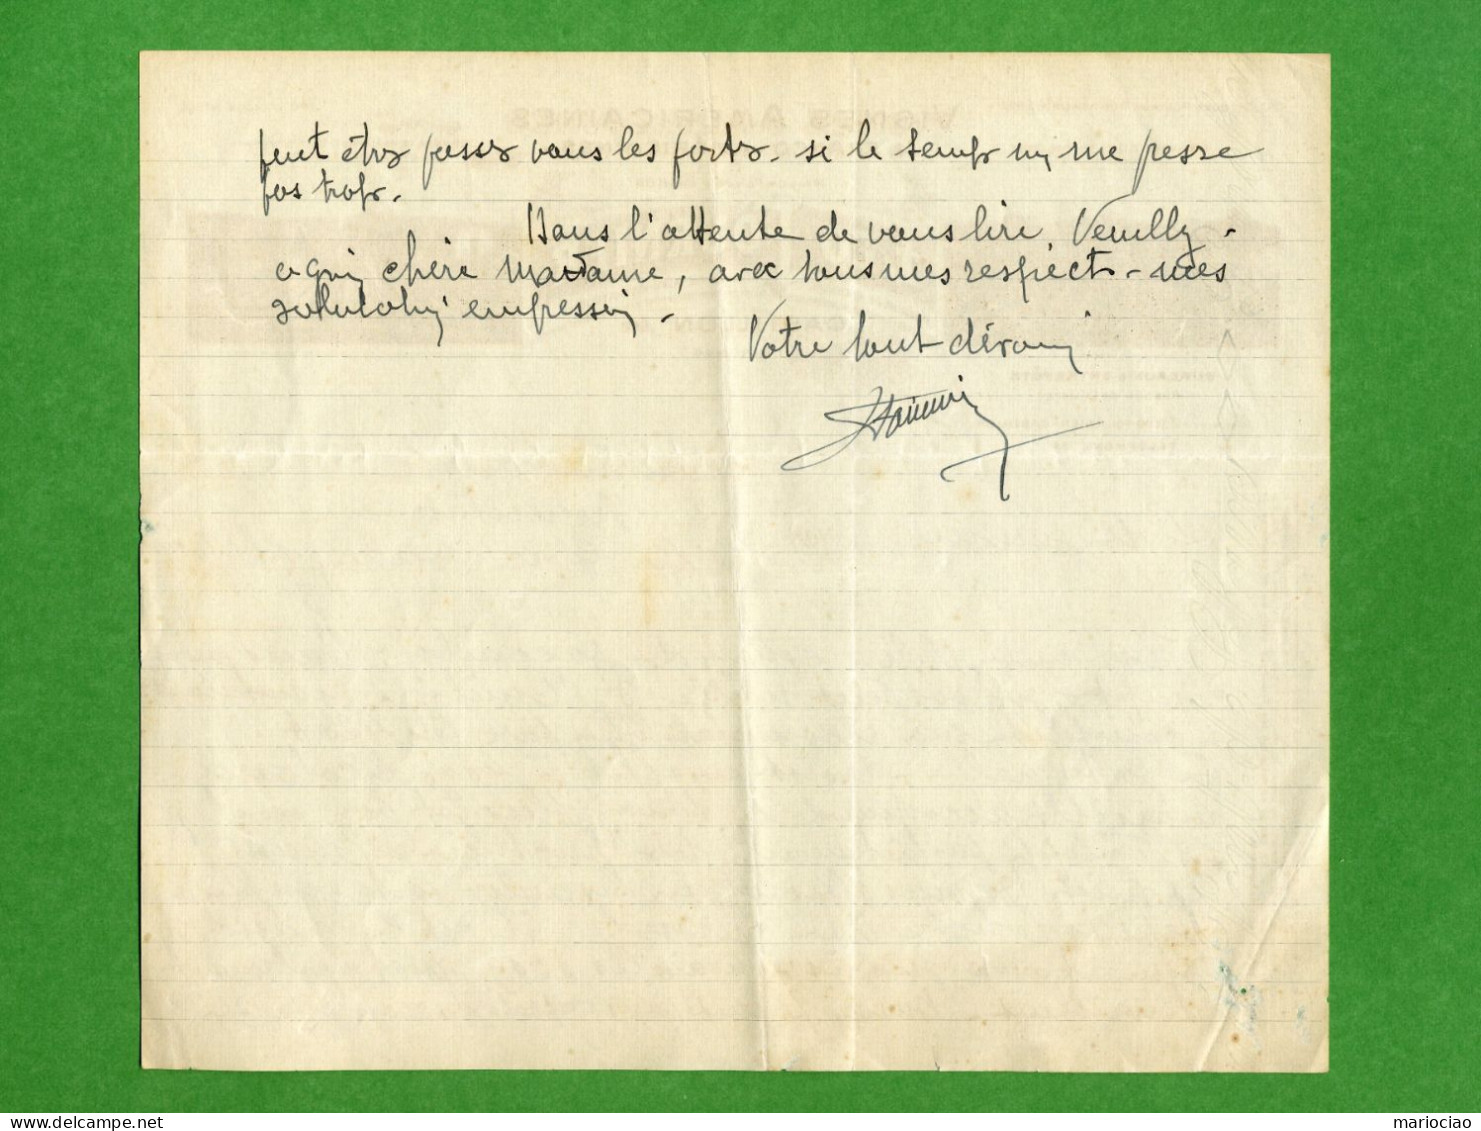 peut être passer vous les portes. si le temps ne me presse
pas trop.
Dans l'attente de vous lire, Veuillez
agréer chère Madame, avec tous mes respects mes
salutations empressées.
Votre tout dévoué
VIGNES AMÉRICAINES
mariociao